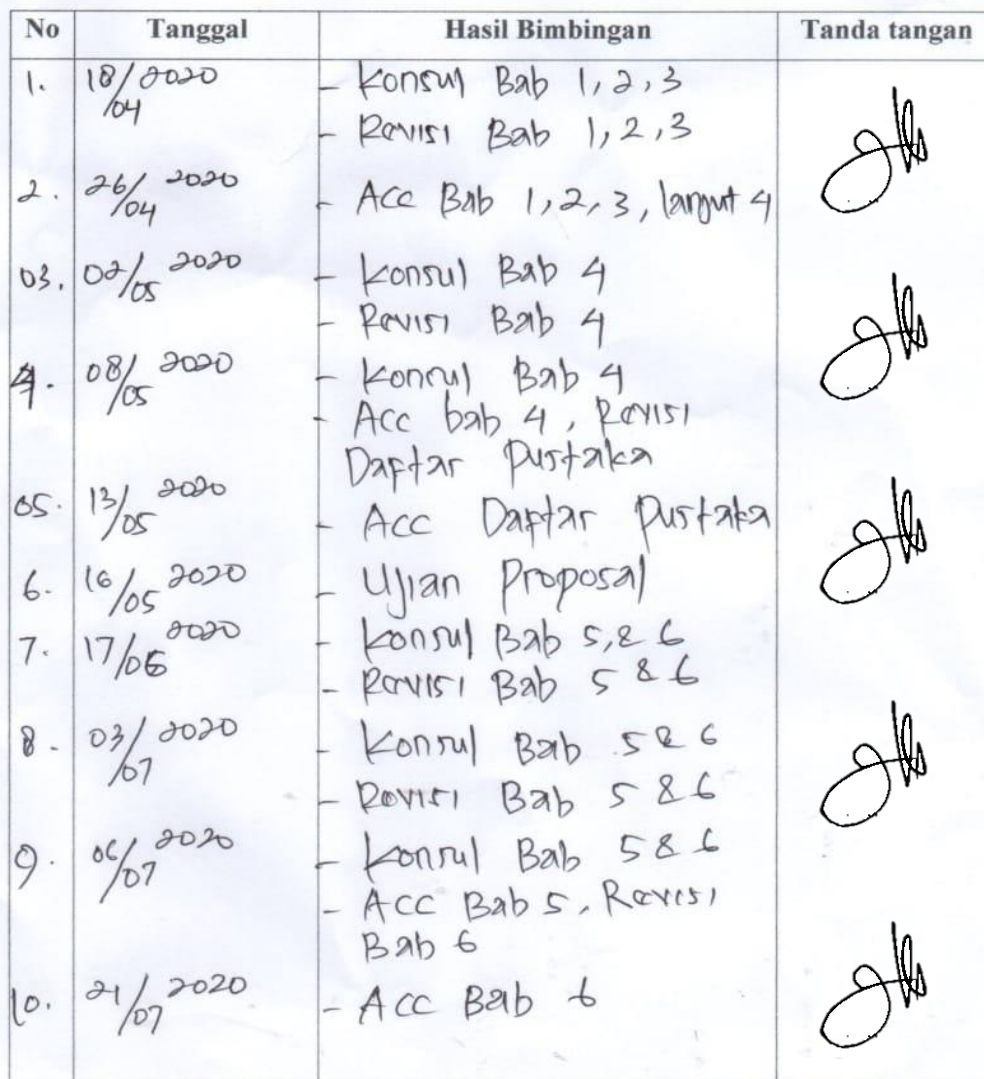 No Tanggal Hasil Bimbingan Tanda tangan
1. 18/04 2020 - Konsul Bab 1, 2, 3
- Revisi Bab 1, 2, 3
2. 26/04 2020 - Acc Bab 1, 2, 3, lanjut 4
03. 02/05 2020 - Konsul Bab 4
- Revisi Bab 4
4. 08/05 2020 - Konsul Bab 4
- Acc bab 4, Revisi
Daftar Pustaka
05. 13/05 2020 - Acc Daftar Pustaka
6. 16/05 2020 - Ujian Proposal
7. 17/06 2020 - Konsul Bab 5, & 6
- Revisi Bab 5 & 6
8. 03/07 2020 - Konsul Bab 5 & 6
- Revisi Bab 5 & 6
9. 06/07 2020 - Konsul Bab 5 & 6
- Acc Bab 5, Revisi
Bab 6
10. 21/07 2020 - Acc Bab 6